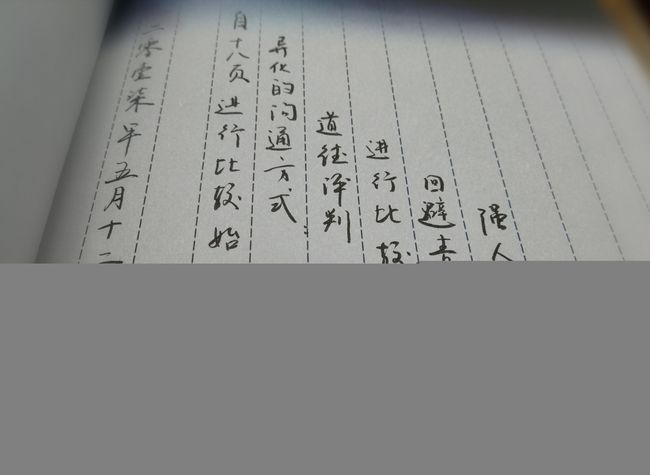 二零壹柒年五月十二
自十八页 进行比较 始
异化的沟通方式:
道德评判
进行比较
回避责
强人